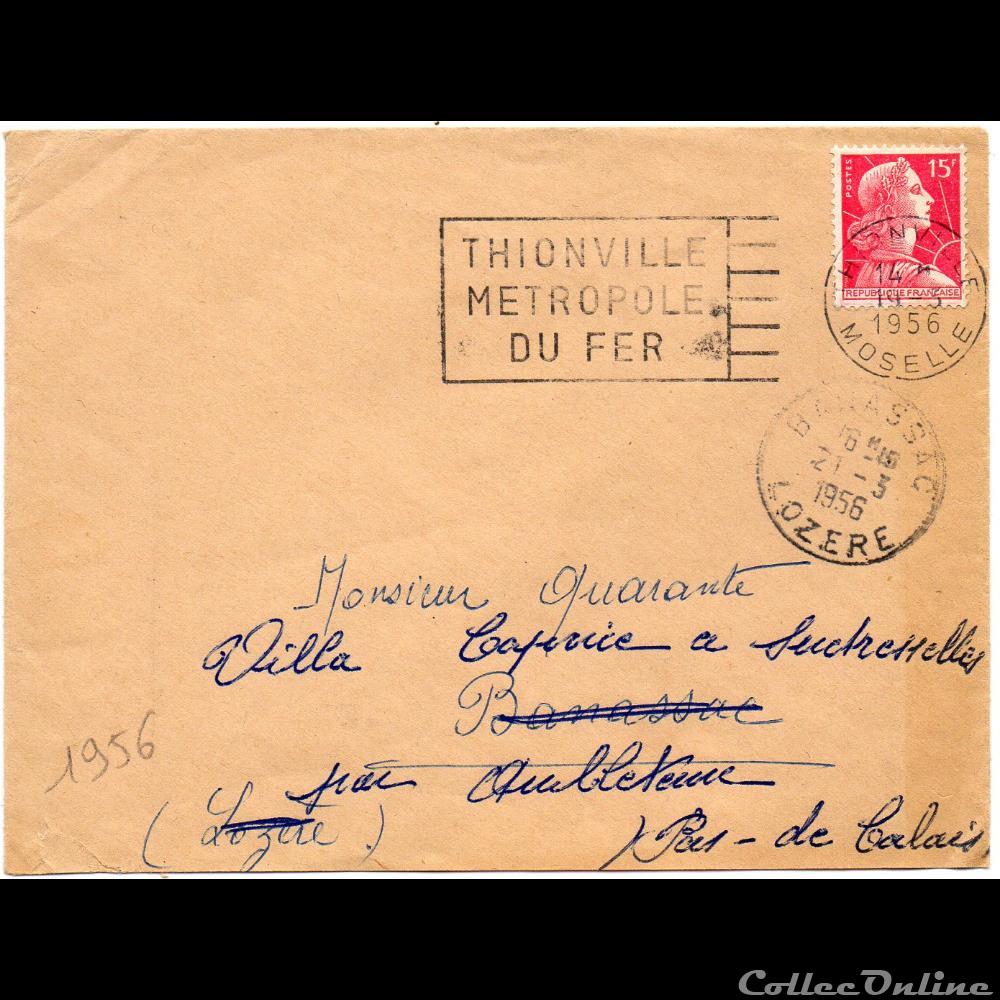 POSTES 15F
REPUBLIQUE FRANÇAISE
THIONVILLE
METROPOLE
DU FER
THIONVILLE
14 H
19 - 3
1956
MOSELLE
BANASSAC
16 H
21 - 3
1956
LOZERE
Monsieur Quarante
Villa a Audresselles
Banassac
par Ambleteuse
(Lozère)
Pas-de Calais
1956
CollecOnline